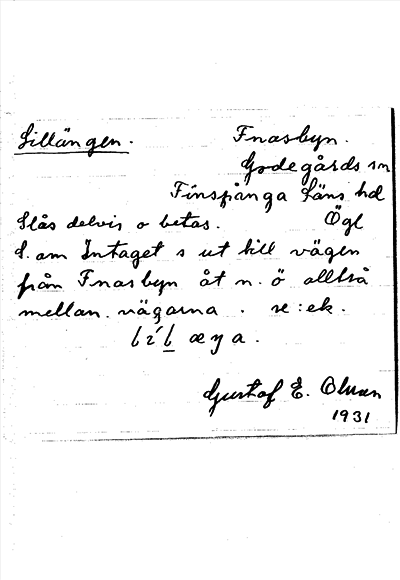 Lillängen. Fnasbyn.
Godegårds sn
Finspånga Läns hd
Slås delvis o betas. Ögl
S. om Intaget s ut till vägen
från Fnasbyn åt n. ö alltså
mellan vägarna. se: ek.
Gustaf E. Olsson
1931